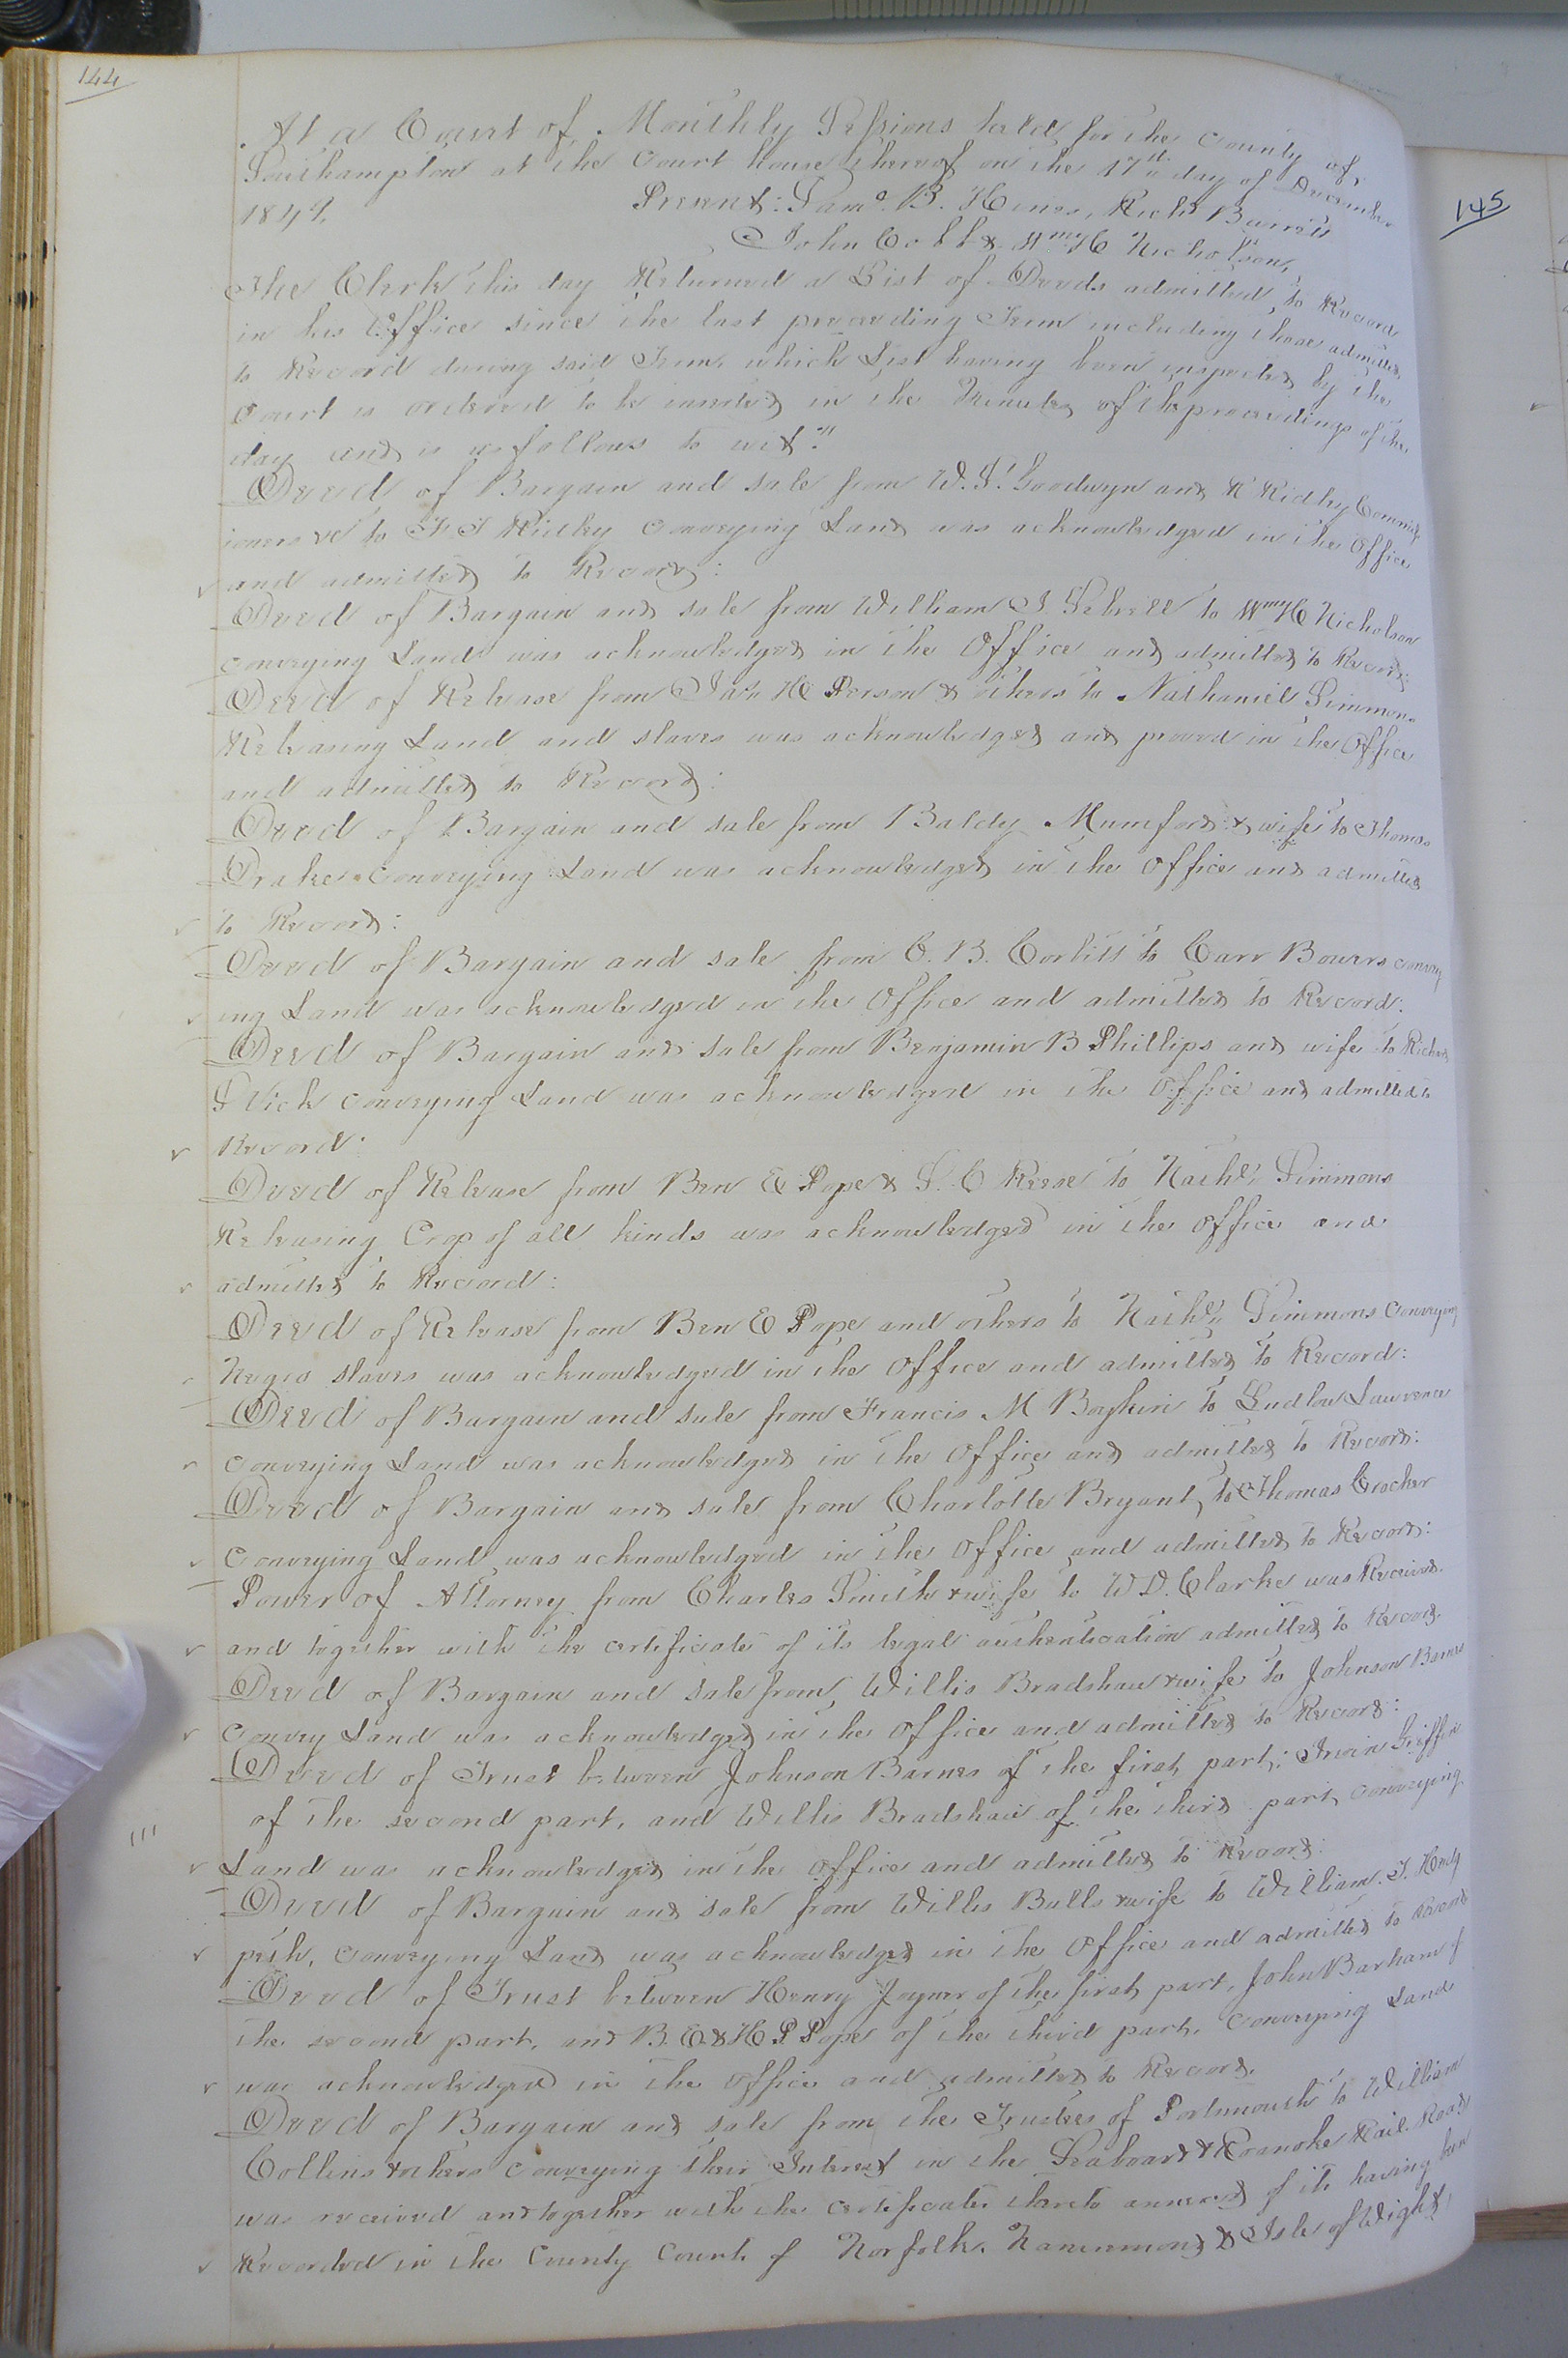 144
At a Court of Monthly Sessions held for the County of
Southampton at the Court house thereof on the 17th day of December
1849.
Present: Saml. B. Hines, Richd Barrett
John Cobb & Wm H Nicholson,
The Clerk this day Returned a List of Deeds admitted to Record
in his Office since the last preceding Term including those admitted
to Record during said Term, which List having been inspected by the
Court is ordered to be inserted in the Minutes of the proceedings of the
day and is as follows to wit:"
Deed of Bargain and sale from W. S. Goodwyn and R Ridley Commiss
ioners &c to Ridley Conveying Land was acknowledged in the Office
and admitted to Record:
Deed of Bargain and sale from William J. Sebrell to Wm H Nicholson
conveying Land was acknowledged in the Office and admitted to Record:
Deed of Release from H Person & others to Nathaniel Simmons
Releasing Land and slaves was acknowledged and proved in the Office
and admitted to Record:
Deed of Bargain and sale from Baldy Mumford & wife to Thomas
Drake Conveying Land was acknowledged in the Office and admitted
to Record:
Deed of Bargain and sale from C. B. Corlitt to Carr Bowers convey
ing Land was acknowledged in the Office and admitted to Record:
Deed of Bargain and sale from Benjamin B Phillips and wife to Richard
S Vick conveying Land was acknowledged in the Office and admitted to
Record:
Deed of Release from Ben E Pope & S. C Reese to Nathl. Simmons
Releasing Crop of all kinds was acknowledged in the Office and
admitted to Record:
Deed of Release from Ben E Pope and others to Nathl. Simmons Conveying
Negro slaves was acknowledged in the Office and admitted to Record:
Deed of Bargain and sale from Francis M Boykin to Ludlow Lawrence
conveying Land was acknowledged in the Office and admitted to Record:
Deed of Bargain and sale from Charlotte Bryant, to Thomas Crocker
Conveying Land was acknowledged in the Office and admitted to Record:
Power of Attorney from Charles Smith & wife to W D. Clarke was Received
and together with the certificate of its legal authentication admitted to Record.
Deed of Bargain and sale from Willis Bradshaw & wife to Johnson Barnes
Convey Land was acknowledged in the Office and admitted to Record:
Deed of Trust between Johnson Barnes of the first part; Irvin Griffin
of the second part, and Willis Bradshaw of the third part, conveying
Land was acknowledged in the Office and admitted to Record:
Deed of Bargain and sale from Willis Bulls & wife to William. J. Holly
pish, conveying Land was acknowledged in the Office and admitted to Record
Deed of Trust between Henry Joyner of the first part, John Barham of
the second part, and B. E. & H P Pope of the third part, Conveying Land
was acknowledged in the Office and admitted to Record.
Deed of Bargain and sale from the Trustees of Portsmouth to William
Collins & others Conveying their Interest in the Seaboard & Roanoke Rail Road
was received and together with the certificates thereto annexed of its having been
Recorded in the County Court of Norfolk, Nansemond & Isle of Wight,
145